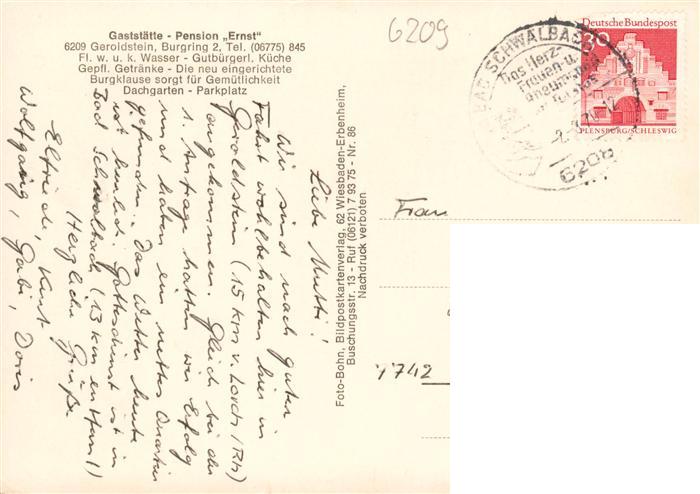 6209
Gaststätte - Pension „Ernst"
6209 Geroldstein, Burgring 2, Tel. (06775) 845
Fl. w. u. k. Wasser - Gutbürgerl. Küche
Gepfl. Getränke - Die neu eingerichtete
Burgklause sorgt für Gemütlichkeit
Dachgarten - Parkplatz
Liebe Mutti!
Wir sind nach guter
Fahrt wohlbehalten hier in
Geroldstein (15 km v. Lorch/Rh)
angekommen. Gleich bei der
1. Anfrage hatten wir Erfolg
und haben ein nettes Quartier
gefunden. Das Wetter heute
ist herrlich. Gottesdienst ist in
Bad Schwalbach (13 km entfernt)
Herzliche Grüße
Elfriede, Kurt
Wolfgang, Gabi, Doris
Foto-Bohn, Bildpostkartenverlag, 62 Wiesbaden-Erbenheim,
Buschungsstr. 13 - Ruf (06121) 7 93 75 - Nr. 86
Nachdruck verboten
BAD SCHWALBACH
Das Herz-
Frauen-u.
6208
Deutsche Bundespost
30
FLENSBURG/SCHLESWIG
Frau
7742